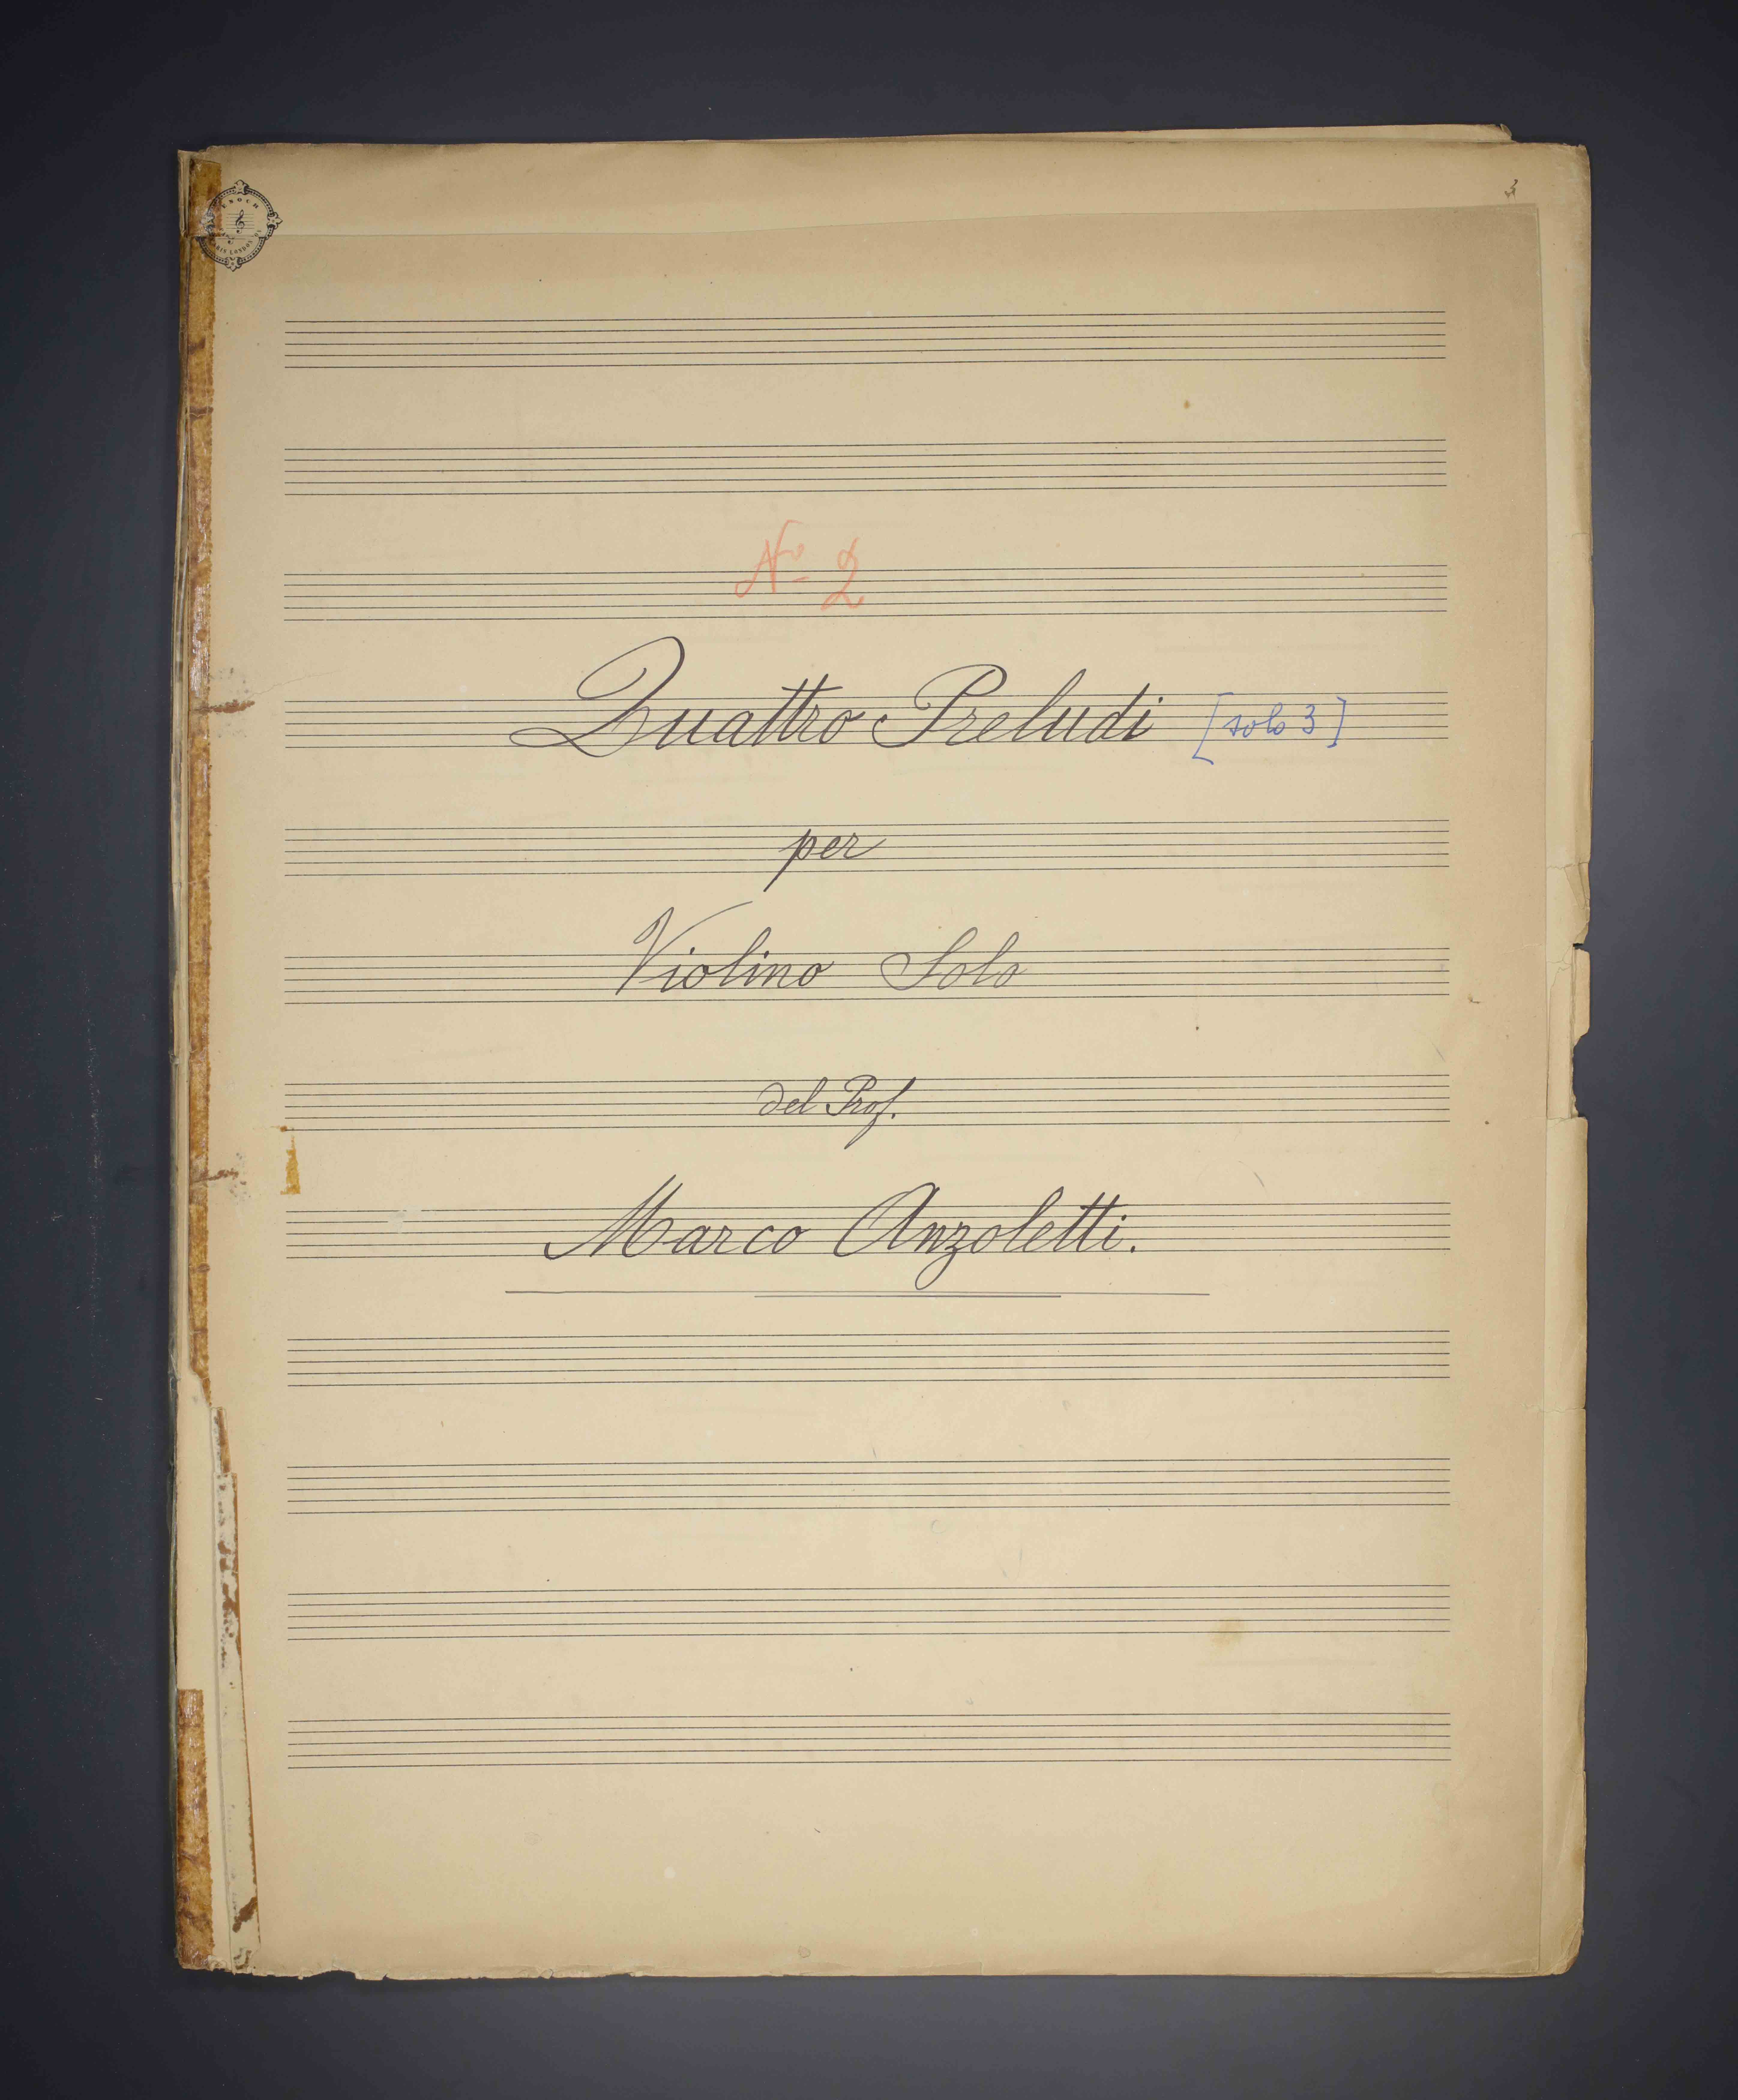 3
ENOCH
LONDON
Nº 2
Quattro Preludi [solo 3]
per
Violino Solo
del Prof.
Marco Anzoletti.